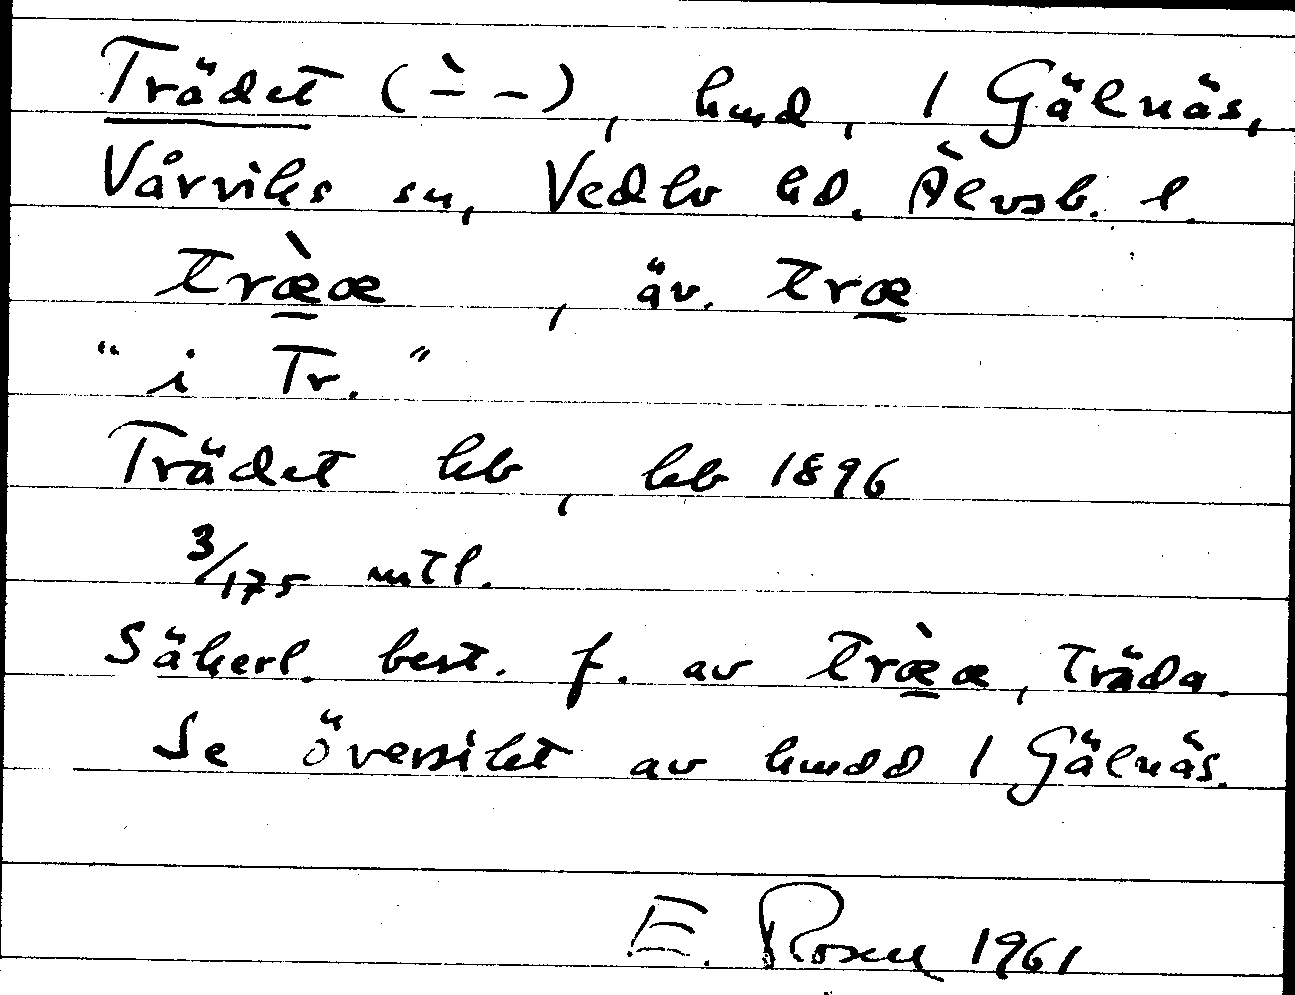 Trädet (-̀ -), hmd, 1 Gälnäs,
Vårviks sn, Vedbo hd. Älvsb. l.
træ̀æ, äv. træ
"i Tr."
Trädet kb, kb 1896
3/175 mtl.
Säkerl. best. f. av træ̀æ, träda.
Se översikt av hmdd 1 Gälnäs.
E. Rosen 1961